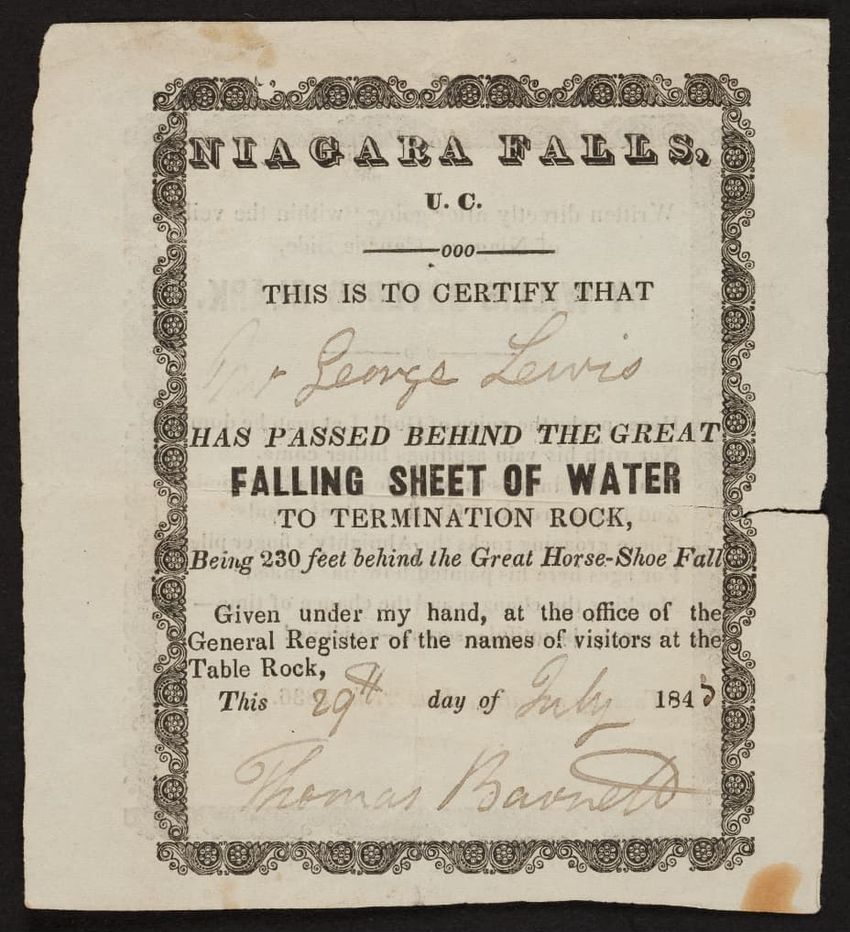 NIAGARA FALLS,
U. C.
ooo
THIS IS TO CERTIFY THAT
George Lewis
HAS PASSED BEHIND THE GREAT
FALLING SHEET OF WATER
TO TERMINATION ROCK,
Being 230 feet behind the Great Horse-Shoe Fall
Given under my hand, at the office of the
General Register of the names of visitors at the
Table Rock,
This 29th day of July 184
Thomas Barnett